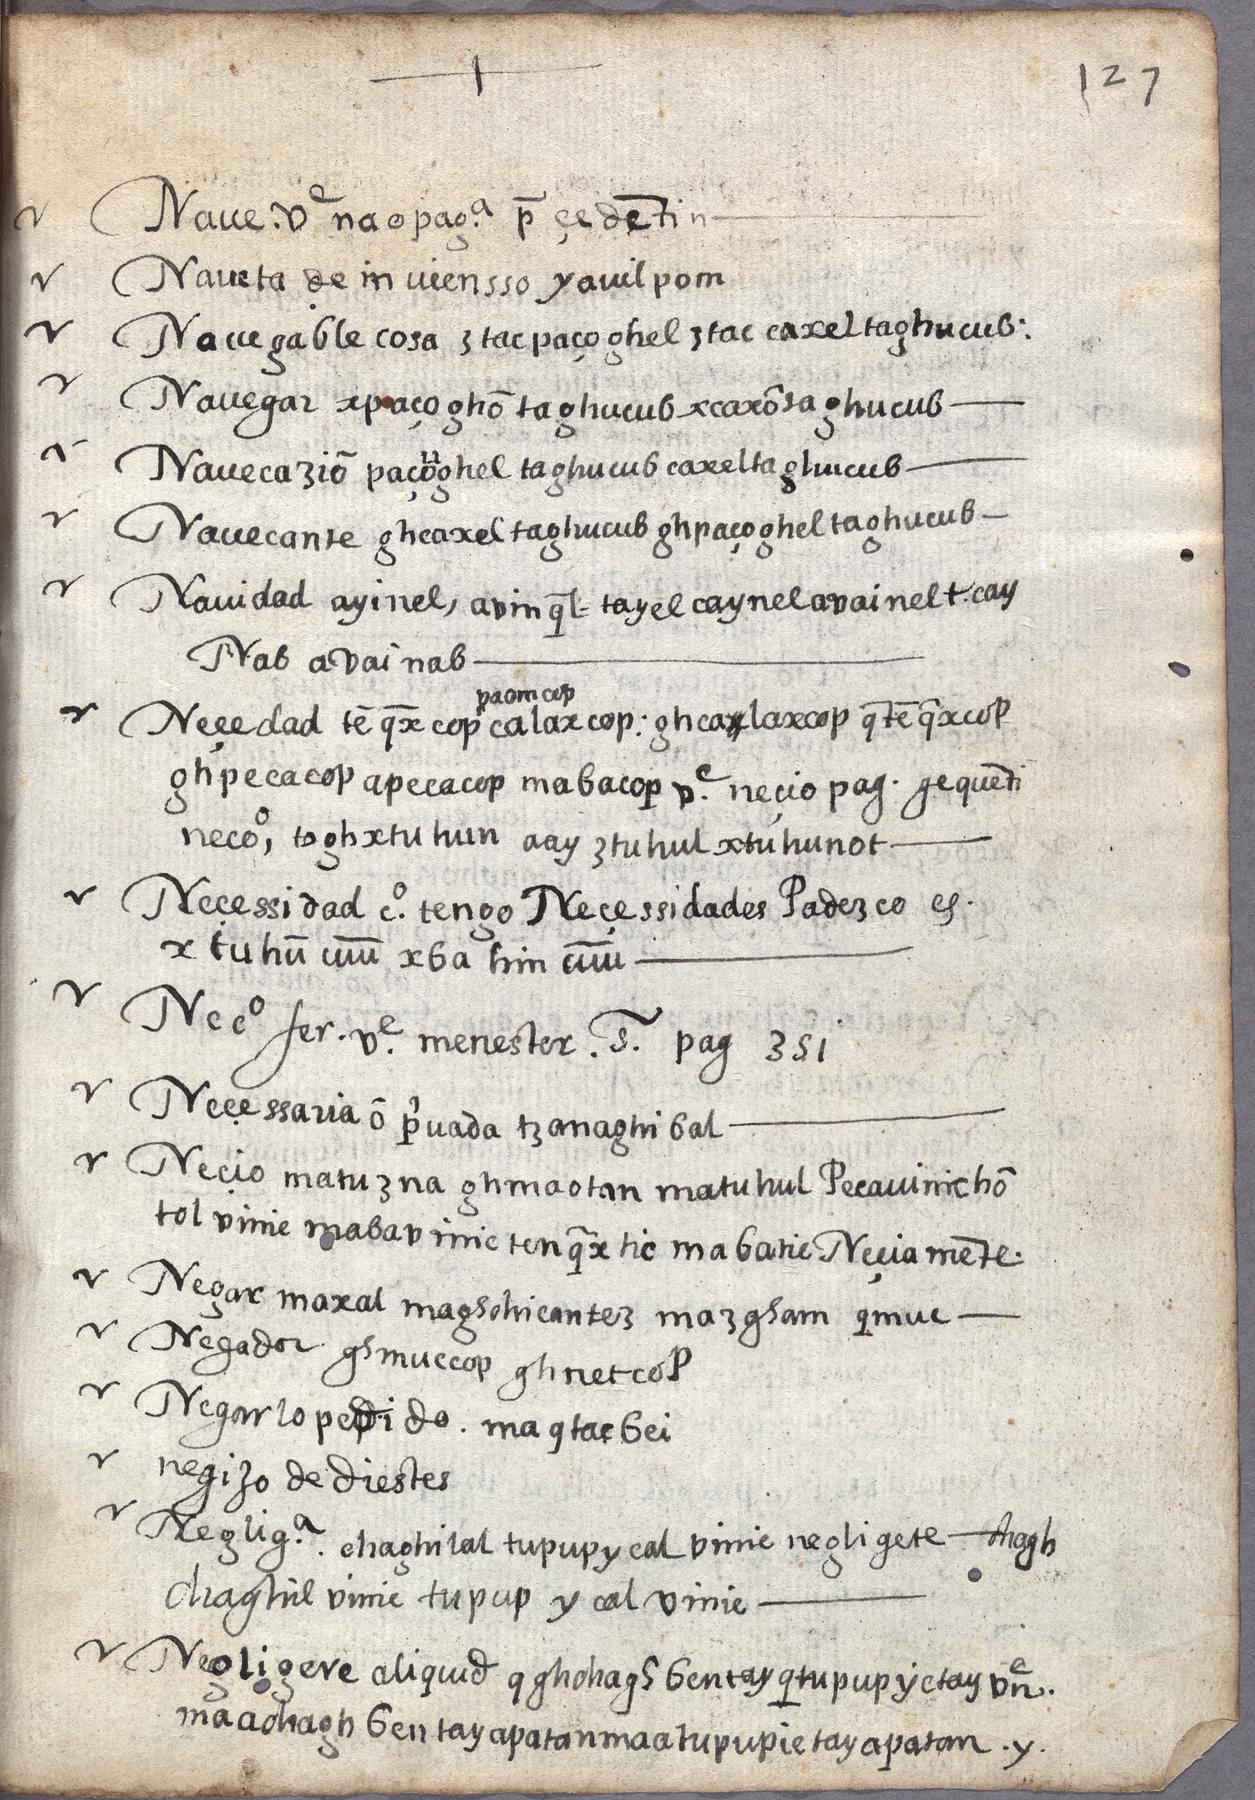 127
Naue. v.e nao pag.a p̄ çedēti n
Naueta de in uiensso yauil pom
Nauegable cosa ʒtac paço ghel ʒtac caxel taghucub.
Nauegar xpaço ghō taghucub xcaxō ta ghucub
Nauecaʒiō paçoghel taghucub caxel ta ghucub
Nauecante ghcaxel taghucub ghpaçoghel taghucub
Nauidad ayinel, avin q̄l tayel caynel avainel t. cay
Nab avainab
paom cop
Neçedad tē q̄x cop calaxcop: ghcalaxcop q̄ tē q̄xcop
ghpecacop apecacop mabacop v.e neçio pag. sequēti
neco, to ghxtuhun aay ʒtuhul xtuhunot
Neçessidad c.o tengo Neçessidades Padeʒco es.
x tuhū cuū xba hin cuū
Neco ser. v.e menester. S. pag 351
Neçessaria ō p̄uada tʒanaghibal
Neçio matuʒna ghmaotan matuhul Pecauinic hō
tol vinic mabavinic ten q̄x tic mabatic Neçiamēte.
Negar maxal maghohicanteʒ maʒgham qmuc
Negador ghmuccop ghnetcop
Negar lo pedido. ma qtac bei
negiʒo de diestes
Neglig.a chaghilal tupupycal vinic negligēte chagh
chaghil vinic tupup y cal vinic
Negligere aliquid q ghchagh bentay qtupupyetay vn.a
maachagh bentayapatan maatupupietayapatan .y.